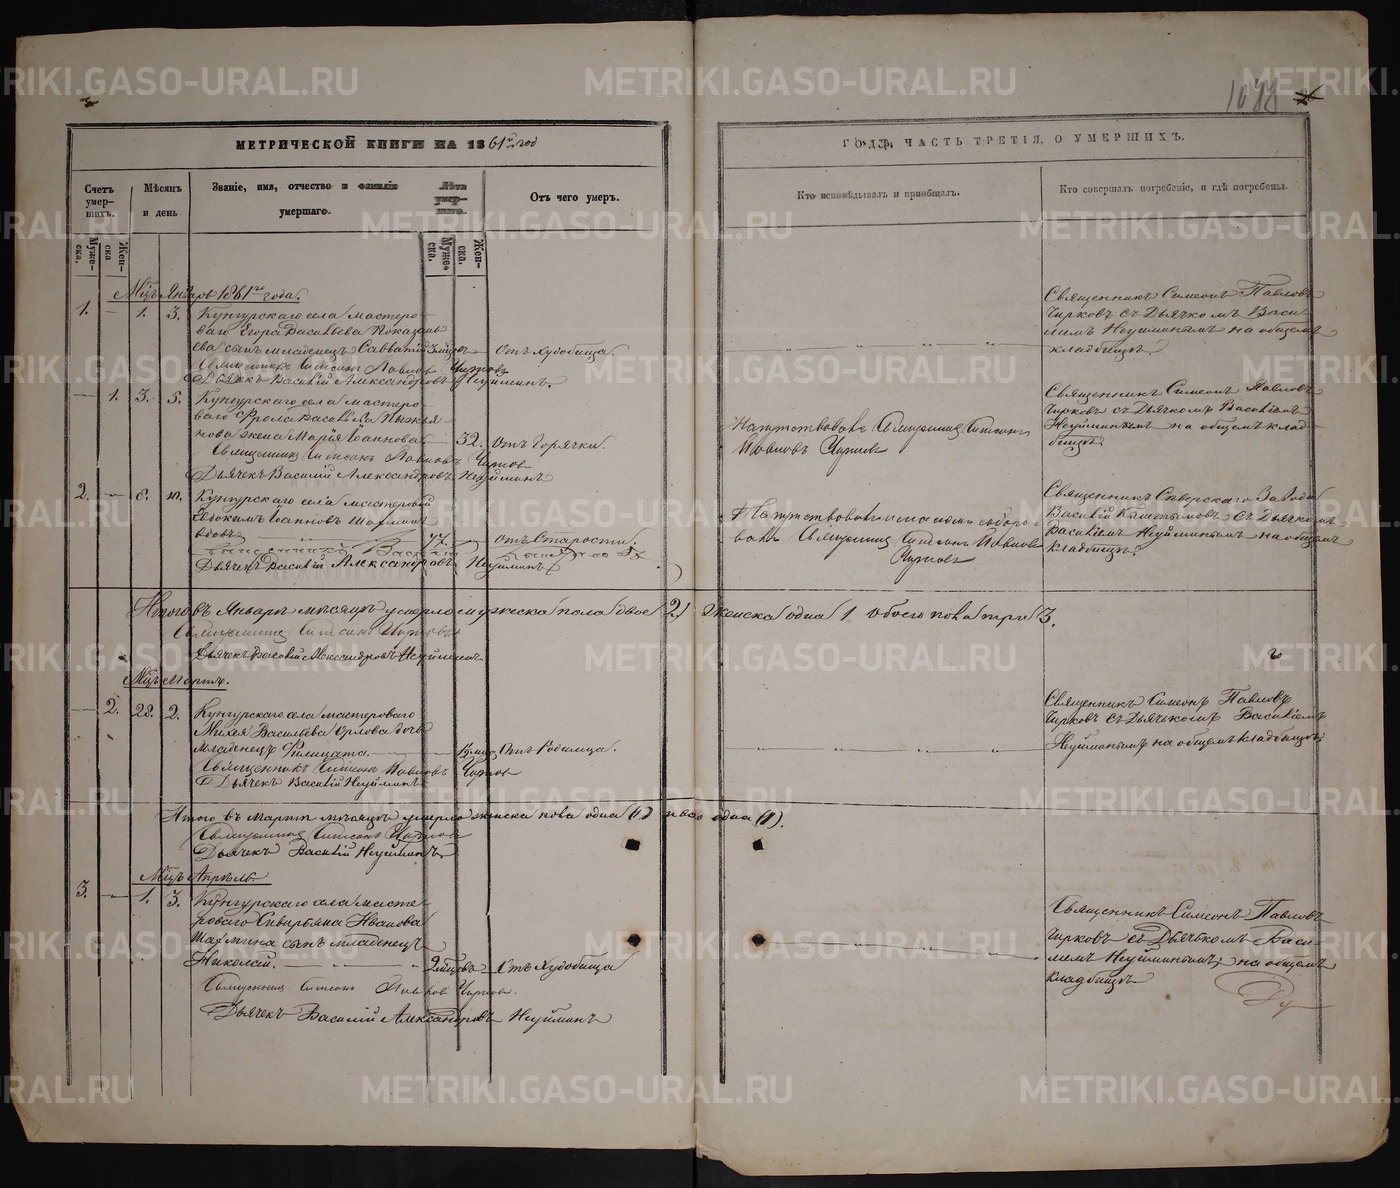 1077
МЕТРИЧЕСКОЙ КНИГИ НА 1861й год
Счетъ умер- шихъ.
Мѣсяцъ и день
Званіе, имя, отчество и фамилія умершаго.
Лѣта умер- шаго.
Отъ чего умеръ.
Муже- ска.
Жен- ска
Муже- ска.
Жен- ска.
Мцъ Январь 1861го года.
1. — 1. 3. Кунгурскаго села мастеро-
ваго Егора Васильева Показань
ева сынъ младенецъ Савватій 3 мцовъ — Отъ Худобища.
Священникъ Симеонъ Павловъ Чирковъ
Дьячекъ Василій Александровъ Неуйминъ.
— 1. 3. 5. Кунгурскаго села мастеро-
ваго Фрола Васильева
нова жена Марія Іоаннова — 32. Отъ Горячки.
Священникъ Симеонъ Павловъ Чирковъ
Дьячекъ Василій Александровъ Неуйминъ
2. — 8. Кунгурскаго села мастеровой
Евдокимъ Іоанновъ
вдовъ — 77. — отъ Старости.
Дьячекъ Василій Александровъ Неуйминъ
Итого въ Январѣ мѣсяцѣ умерло мужеска пола двое (2)
Священникъ Симеонъ Чирковъ
Дьячекъ Василій Александровъ Неуйминъ
Мцъ Мартъ.
— 2. 28. 2. Кунгурскаго села мастероваго
Михея Васильева Орлова дочь
младенецъ Фелицата. — Отъ Родимца.
Священникъ Симеонъ Павловъ Чирковъ
Дьячекъ Василій Неуйминъ
Итого въ Мартѣ мѣсяцѣ умерло женска пола одна (1)
Священникъ Симеонъ Чирковъ
Дьячекъ Василій Неуйминъ
Мцъ Апрѣль.
3. — 1. 3. Кунгурскаго села масте-
роваго Севирьяна Иванова
сынъ младенецъ
Николай. — 2 мцовъ — Отъ Худобища
Священникъ Симеонъ Павловъ Чирковъ.
Дьячекъ Василій Александровъ Неуйминъ
ГОДЪ, ЧАСТЬ ТРЕТІЯ, О УМЕРШИХЪ.
Кто исповѣдывалъ и пріобщалъ.
Кто совершалъ погребеніе, и гдѣ погребены.
Священникъ Симеонъ Павловъ
Чирковъ съ Дьячкомъ Васи-
ліемъ Неуйминымъ на общемъ
кладбищѣ.
Напутствовалъ Священникъ Симеонъ
Павловъ Чирковъ
Священникъ Симеонъ Павловъ
Чирковъ съ Дьячкомъ Василіемъ
Неуйминымъ на общемъ клад-
бищѣ
Священникъ Симеонъ Павловъ
Чирковъ
Священникъ Сѣверскаго Завода
Василій съ Дьячкомъ
Василіемъ Неуйминымъ на общемъ
кладбищѣ
женска одна 1 обоего пола три 3.
Священникъ Симеонъ Павловъ
Чирковъ съ Дьячкомъ Василіемъ
Неуйминымъ на общемъ кладбищѣ
всего одна (1).
Священникъ Симеонъ Павловъ
Чирковъ съ Дьячкомъ Васи-
ліемъ Неуйминымъ, на общемъ
кладбищѣ
METRIKI.GASO-URAL.RU